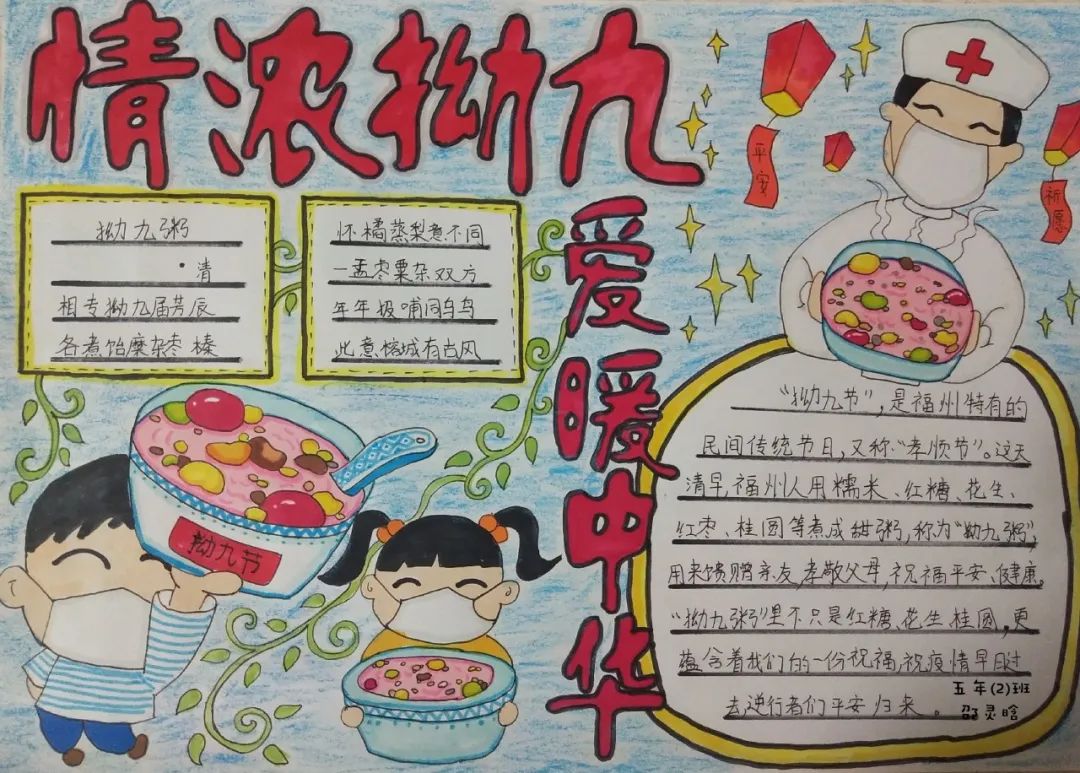 情浓拗九
爱暖中华
拗九粥
·清
相专拗九届芳辰
各煮饴糜杂枣榛
怀橘蒸梨意不同
一盂枣粟杂双方
年年极哺同乌鸟
此意榕城有古风
平安
祈愿
拗九节
“拗九节”,是福州特有的
民间传统节日,又称“孝顺节”。这天
清早福州人用糯米、红糖、花生、
红枣、桂圆等煮成甜粥,称为“拗九粥”,
用来馈赠亲友,孝敬父母,祝福平安、健康。
“拗九粥”里不只是红糖、花生、桂圆,更
蕴含着我们的一份祝福,祝疫情早日过
去逆行者们平安归来。
五年(2)班
邵灵晗